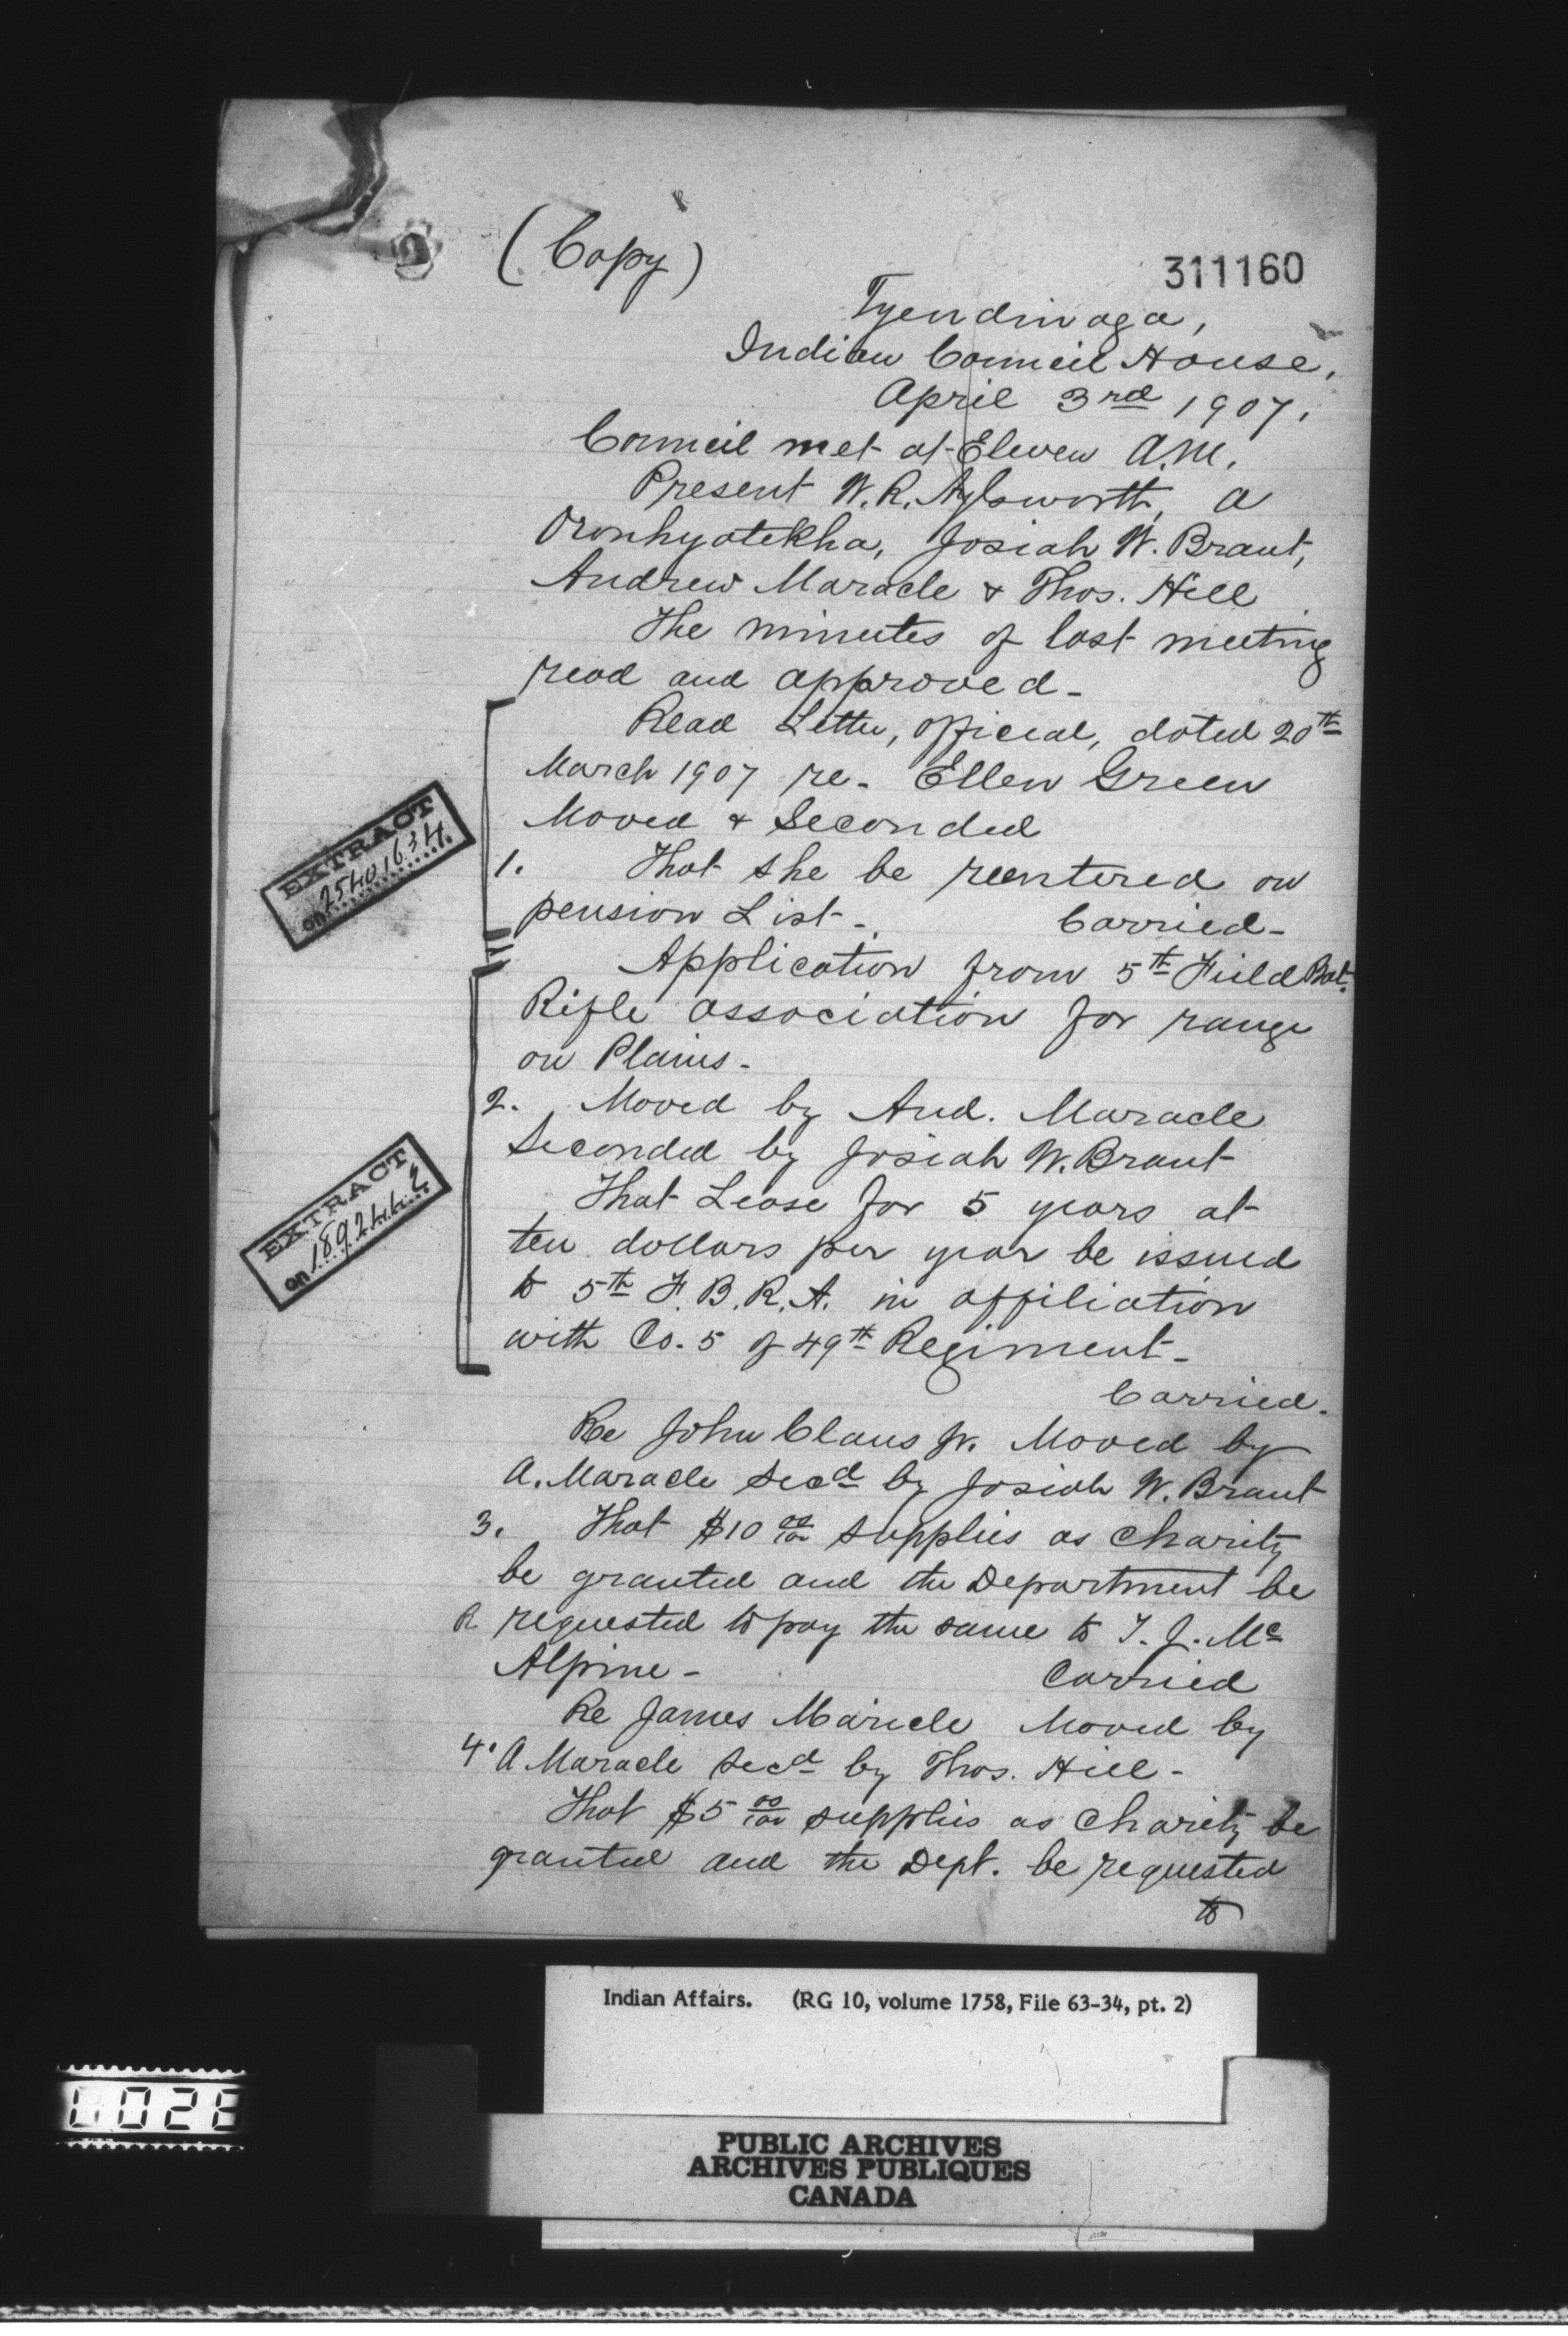 (Copy)
311160
Tyendinaga,
Indian Council House,
April 3rd 1907.
Council met at Eleven A.M.
Present W. R. Aylsworth, A
Oronhyatekha, Josiah W. Brant,
Andrew Maracle & Thos. Hill
The minutes of last meeting
read and approved -
Read Letter, official, dated 20th
March 1907 re - Ellen Green
Moved & Seconded
1. That she be reentered on
pension List - Carried -
EXTRACT
on
Application from 5th Field Bat.
Rifle association for range
on Plains -
2. Moved by And. Maracle
Seconded by Josiah W. Brant
That Lease for 5 years at
ten dollars per year be issued
to 5th F. B. R. A. in affiliation
with Co. 5 of 49th Regiment -
Carried.
EXTRACT
on
Re John Claus Jr. Moved by
A. Maracle Secd by Josiah W. Brant
3. That $10 00/100 supplies as charity
be granted and the Department be
R requested to pay the same to T. J. Mc
Alpine - Carried
Re James Maricle Moved by
4. A Maracle Secd by Thos. Hill -
That $5 00/100 supplies as charity be
granted and the Dept. be requested
to
Indian Affairs. (RG 10, volume 1758, File 63-34, pt. 2)
PUBLIC ARCHIVES
ARCHIVES PUBLIQUES
CANADA